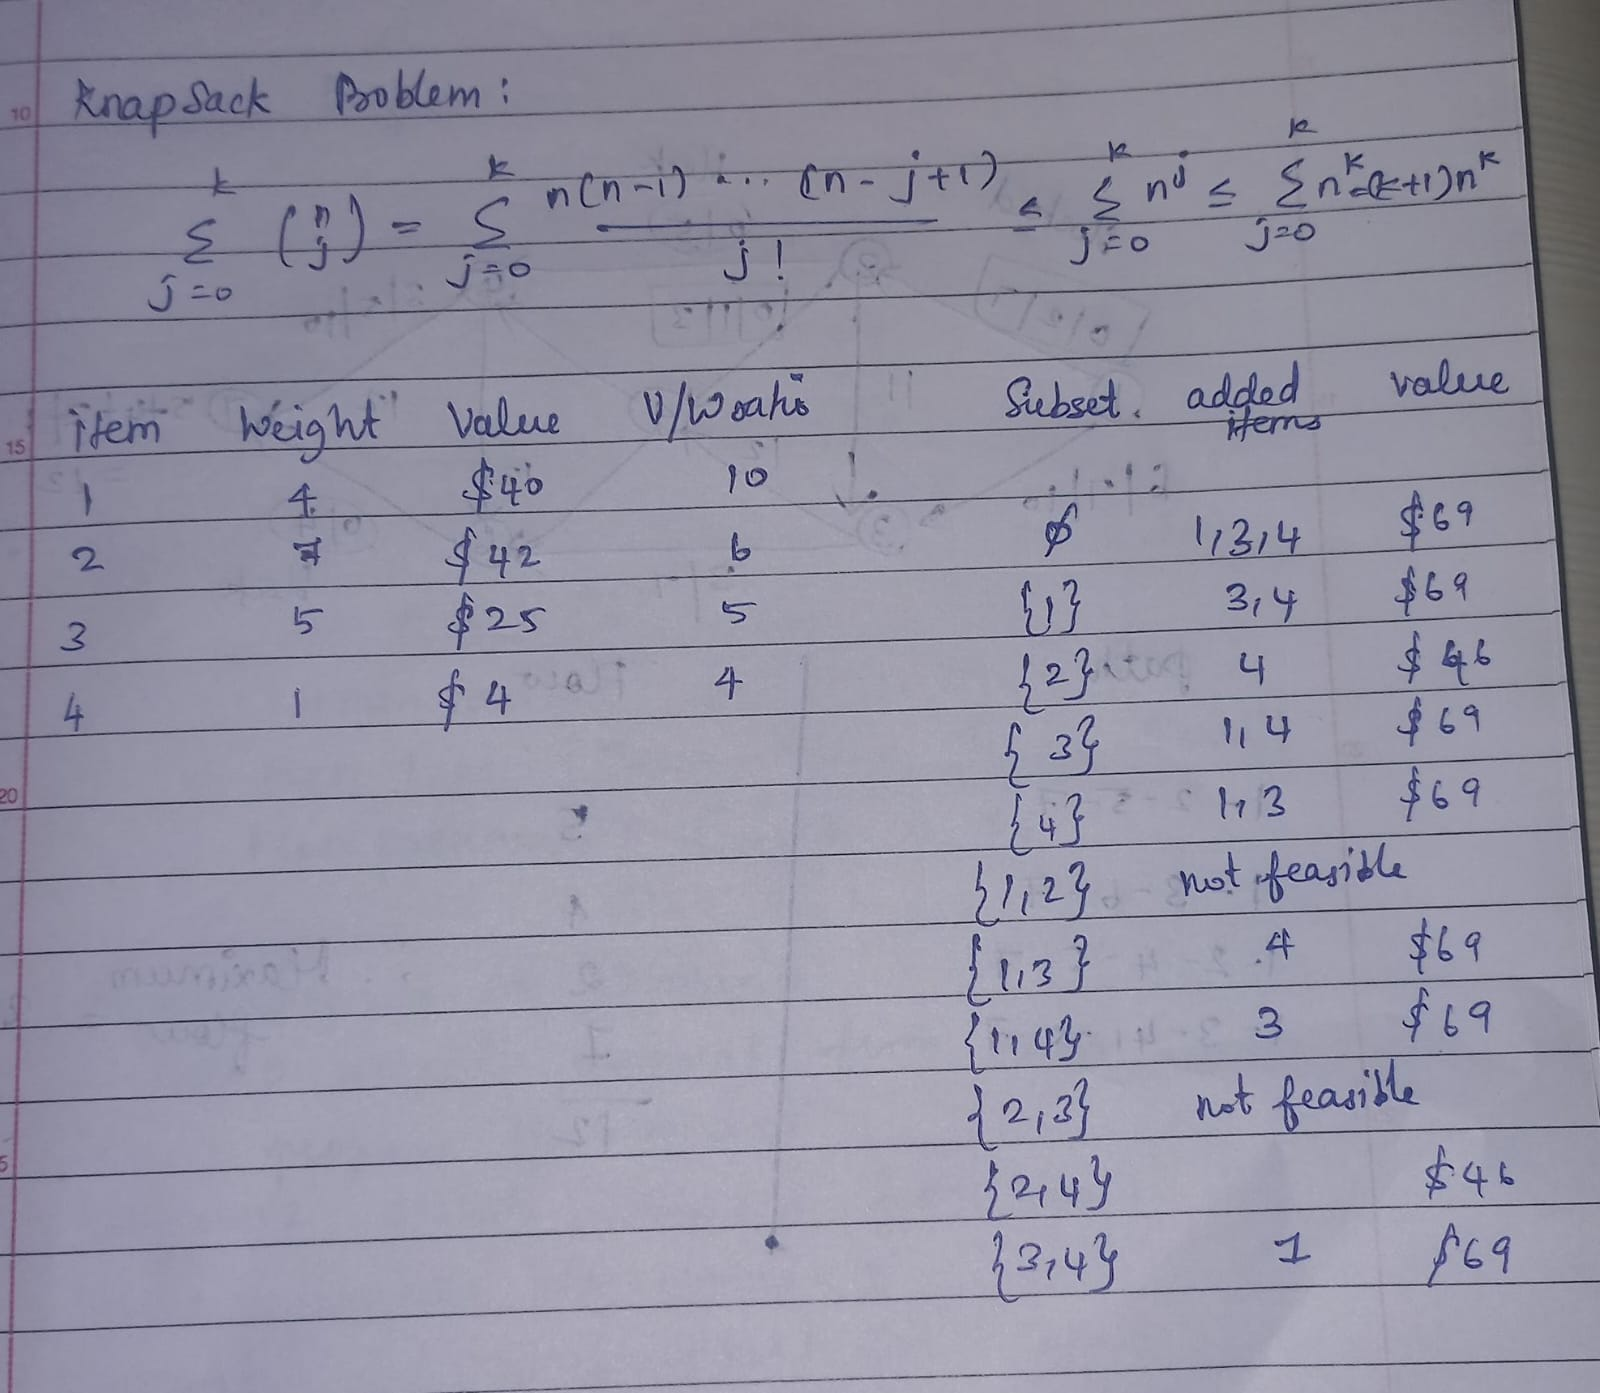 KnapSack Problem:
k∑j=0 (n j) = k∑j=0 n(n-1) ... (n-j+1) / j! ≤ k∑j=0 n^j ≤ k∑j=0 n^k =(k+1)n^k
item Weight Value V/W ratio
1 4 $40 10
2 7 $42 6
3 5 $25 5
4 1 $4 4
Subset. added items value
ϕ 1,3,4 $69
{1} 3,4 $69
{2} 4 $46
{3} 1,4 $69
{4} 1,3 $69
{1,2} not feasible
{1,3} 4 $69
{1,4} 3 $69
{2,3} not feasible
{2,4} $46
{3,4} 1 $69